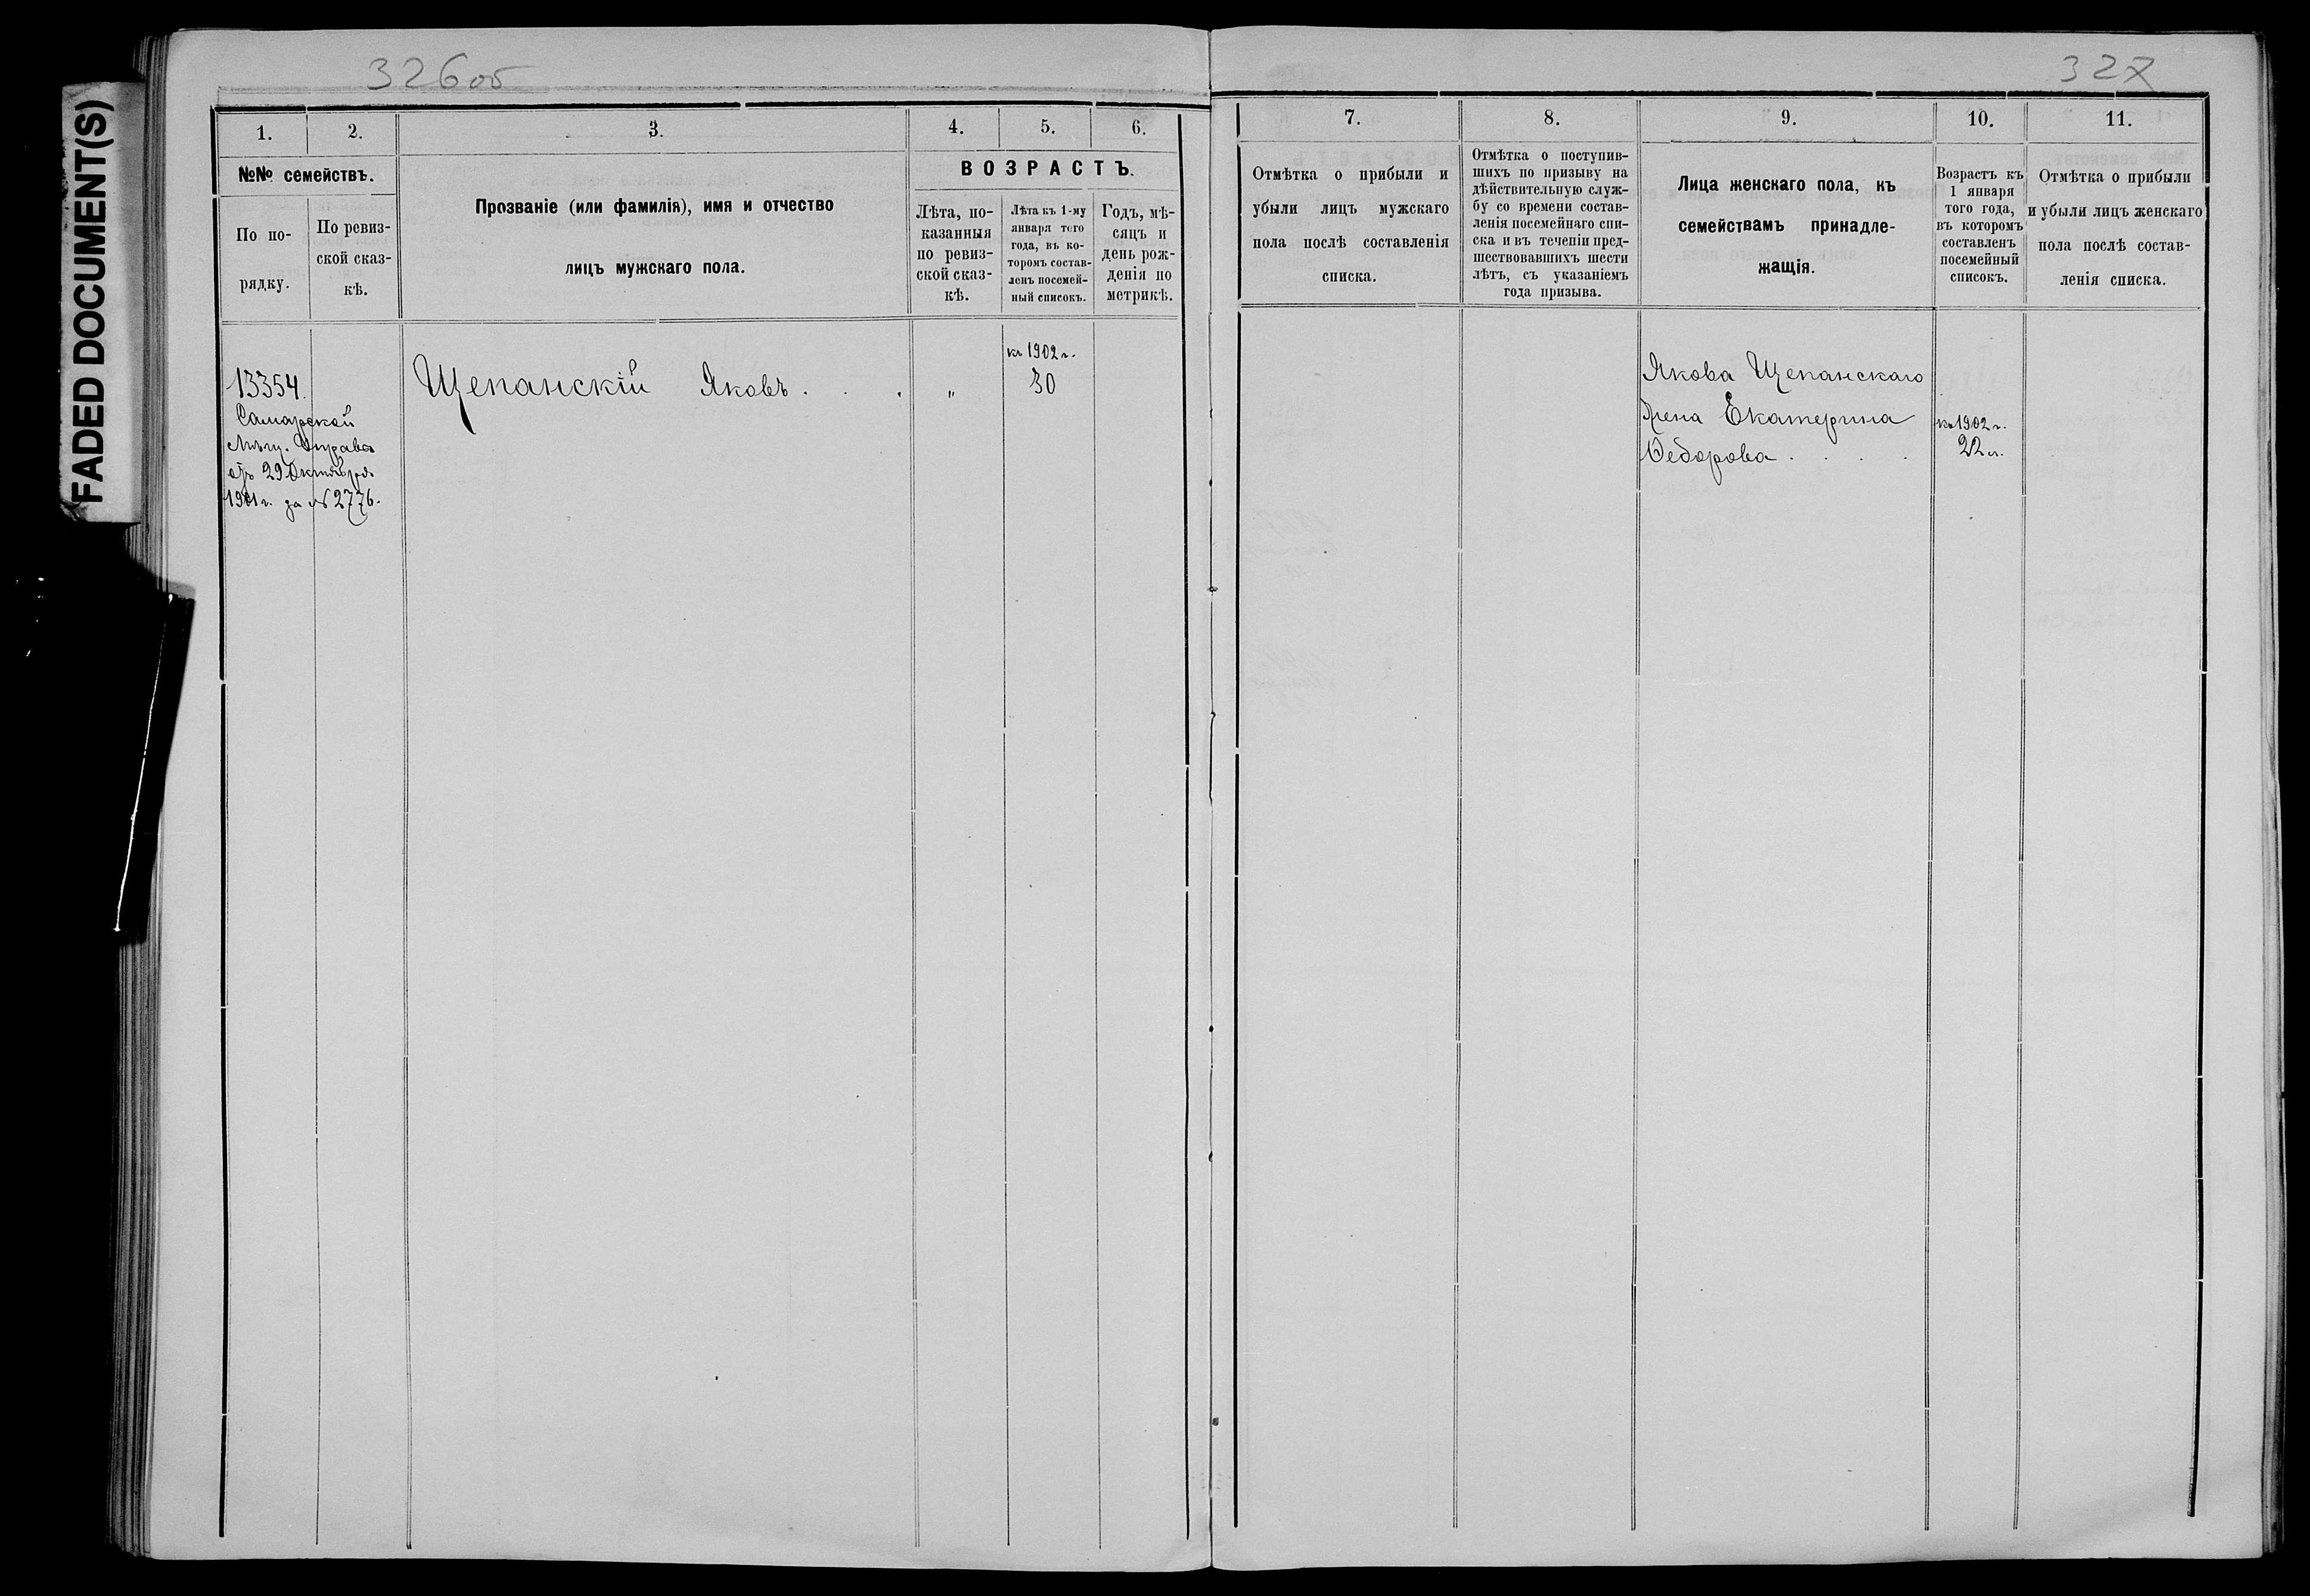 FADED DOCUMENT(S)
326об
1.
2.
3.
4.
5.
6.
№№ семействъ.
По по-
рядку.
По ревиз-
ской сказ-
кѣ.
Прозваніе (или фамилія), имя и отчество
лицъ мужскаго пола.
ВОЗРАСТЪ.
Лѣта, по-
казанныя
по ревиз-
ской сказ-
кѣ.
Лѣта къ 1-му
января того
года, въ ко-
торомъ состав-
ленъ посемей-
ный списокъ.
Годъ, мѣ-
сяцъ и
день рож-
денія по
метрикѣ.
13354.
Самарской
Мѣщ. Управы
отъ 29 Октября
1901 г. за № 2776.
Щепанскій Яковъ . . .
"
къ 1902 г.
30
327
7.
8.
9.
10.
11.
Отмѣтка о прибыли и
убыли лицъ мужскаго
пола послѣ составленія
списка.
Отмѣтка о поступив-
шихъ по призыву на
дѣйствительную служ-
бу со времени состав-
ленія посемейнаго спи-
ска и въ теченіи пред-
шествовавшихъ шести
лѣтъ, съ указаніемъ
года призыва.
Лица женскаго пола, къ
семействамъ принадле-
жащія.
Возрастъ къ
1 января
того года,
въ которомъ
составленъ
посемейный
списокъ.
Отмѣтка о прибыли
и убыли лицъ женскаго
пола послѣ состав-
ленія списка.
Якова Щепанскаго
жена Екатерина
Ѳедорова . . . .
къ 1902 г.
22 л.